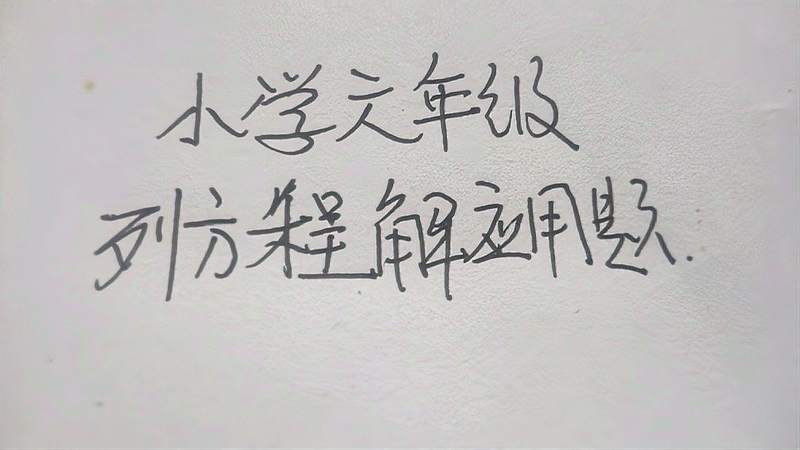 小学六年级
列方程解应用题.